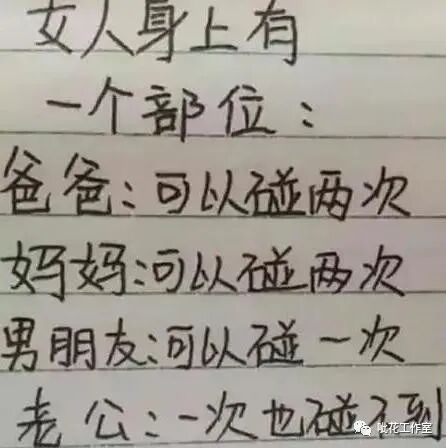 女人身上有
一个部位：
爸爸：可以碰两次
妈妈：可以碰两次
男朋友：可以碰一次
老公：一次也碰不到
呲花工作室